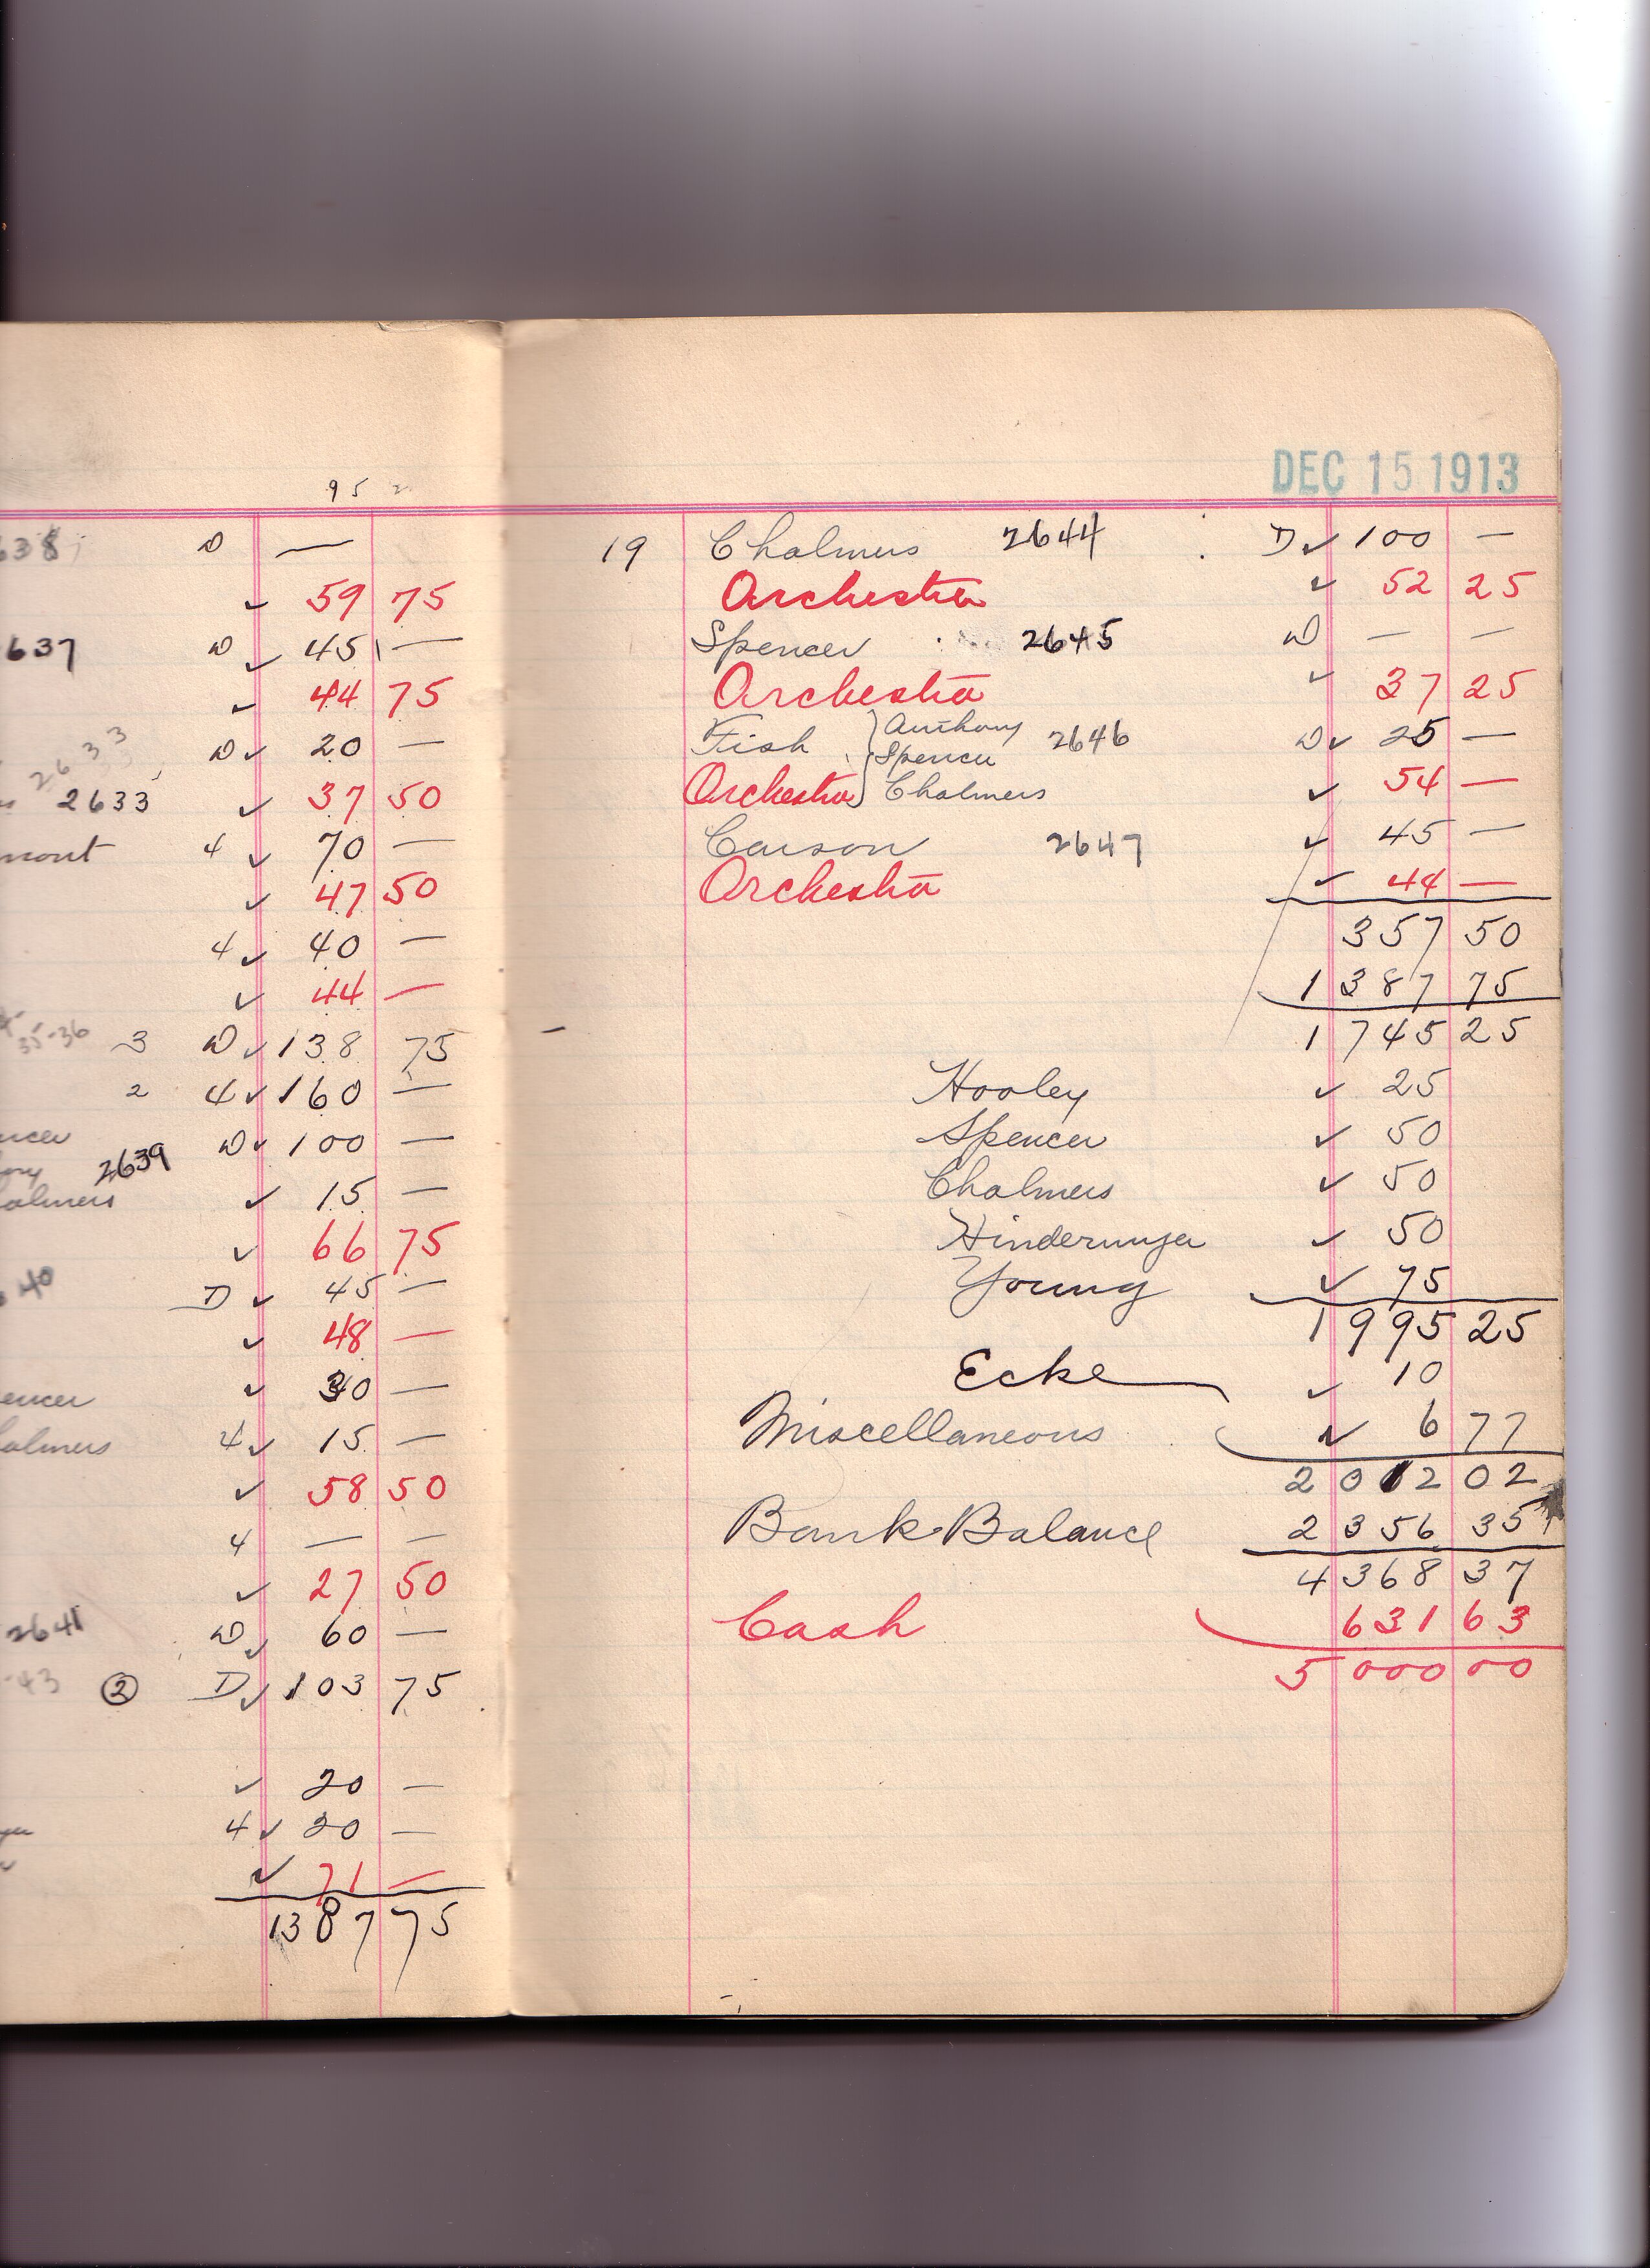 95
638 D —
✓ 59 75
2637 D ✓ 45 —
✓ 44 75
2633
D ✓ 20 —
2633 ✓ 37 50
mont 4 ✓ 70 —
✓ 47 50
4 ✓ 40 —
✓ 44 —
35-36 3 D ✓ 138 75
2 4 ✓ 160 —
D ✓ 100 —
2639
almers ✓ 15 —
✓ 66 75
40 D ✓ 45 —
✓ 48 —
encer ✓ 30 —
almers 4 ✓ 15 —
✓ 58 50
4 — —
✓ 27 50
2641 D ✓ 60 —
-43 ② D ✓ 103 75
✓ 20 —
4 ✓ 20 —
✓ 71 —
1387 75
DEC 15 1913
19 Chalmers 2644 D ✓ 100 —
Orchestra ✓ 52 25
Spencer 2645 D — —
Orchestra ✓ 37 25
Fish } Anthony 2646 D ✓ 25 —
Spencer
Orchestra } Chalmers ✓ 54 —
Carson 2647 ✓ 45 —
Orchestra ✓ 44 —
357 50
1387 75
1745 25
Hooley ✓ 25
Spencer ✓ 50
Chalmers ✓ 50
✓ 50
Young ✓ 75
1995 25
Ecke ✓ 10
Miscellaneous ✓ 6 77
2012 02
Bank Balance 2356 35
4368 37
Cash 631 63
5000 00